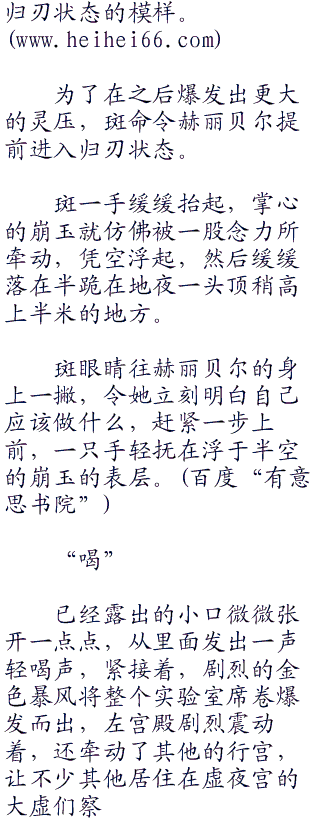 归刃状态的模样。
(www.heihei66.com)
为了在之后爆发出更大
的灵压，斑命令赫丽贝尔提
前进入归刃状态。
斑一手缓缓抬起，掌心
的崩玉就仿佛被一股念力所
牵动，凭空浮起，然后缓缓
落在半跪在地夜一头顶稍高
上半米的地方。
斑眼睛往赫丽贝尔的身
上一撇，令她立刻明白自己
应该做什么，赶紧一步上
前，一只手轻抚在浮于半空
的崩玉的表层。(百度“有意
思书院”)
“喝”
已经露出的小口微微张
开一点点，从里面发出一声
轻喝声，紧接着，剧烈的金
色暴风将整个实验室席卷爆
发而出，左宫殿剧烈震动
着，还牵动了其他的行宫，
让不少其他居住在虚夜宫的
大虚们察